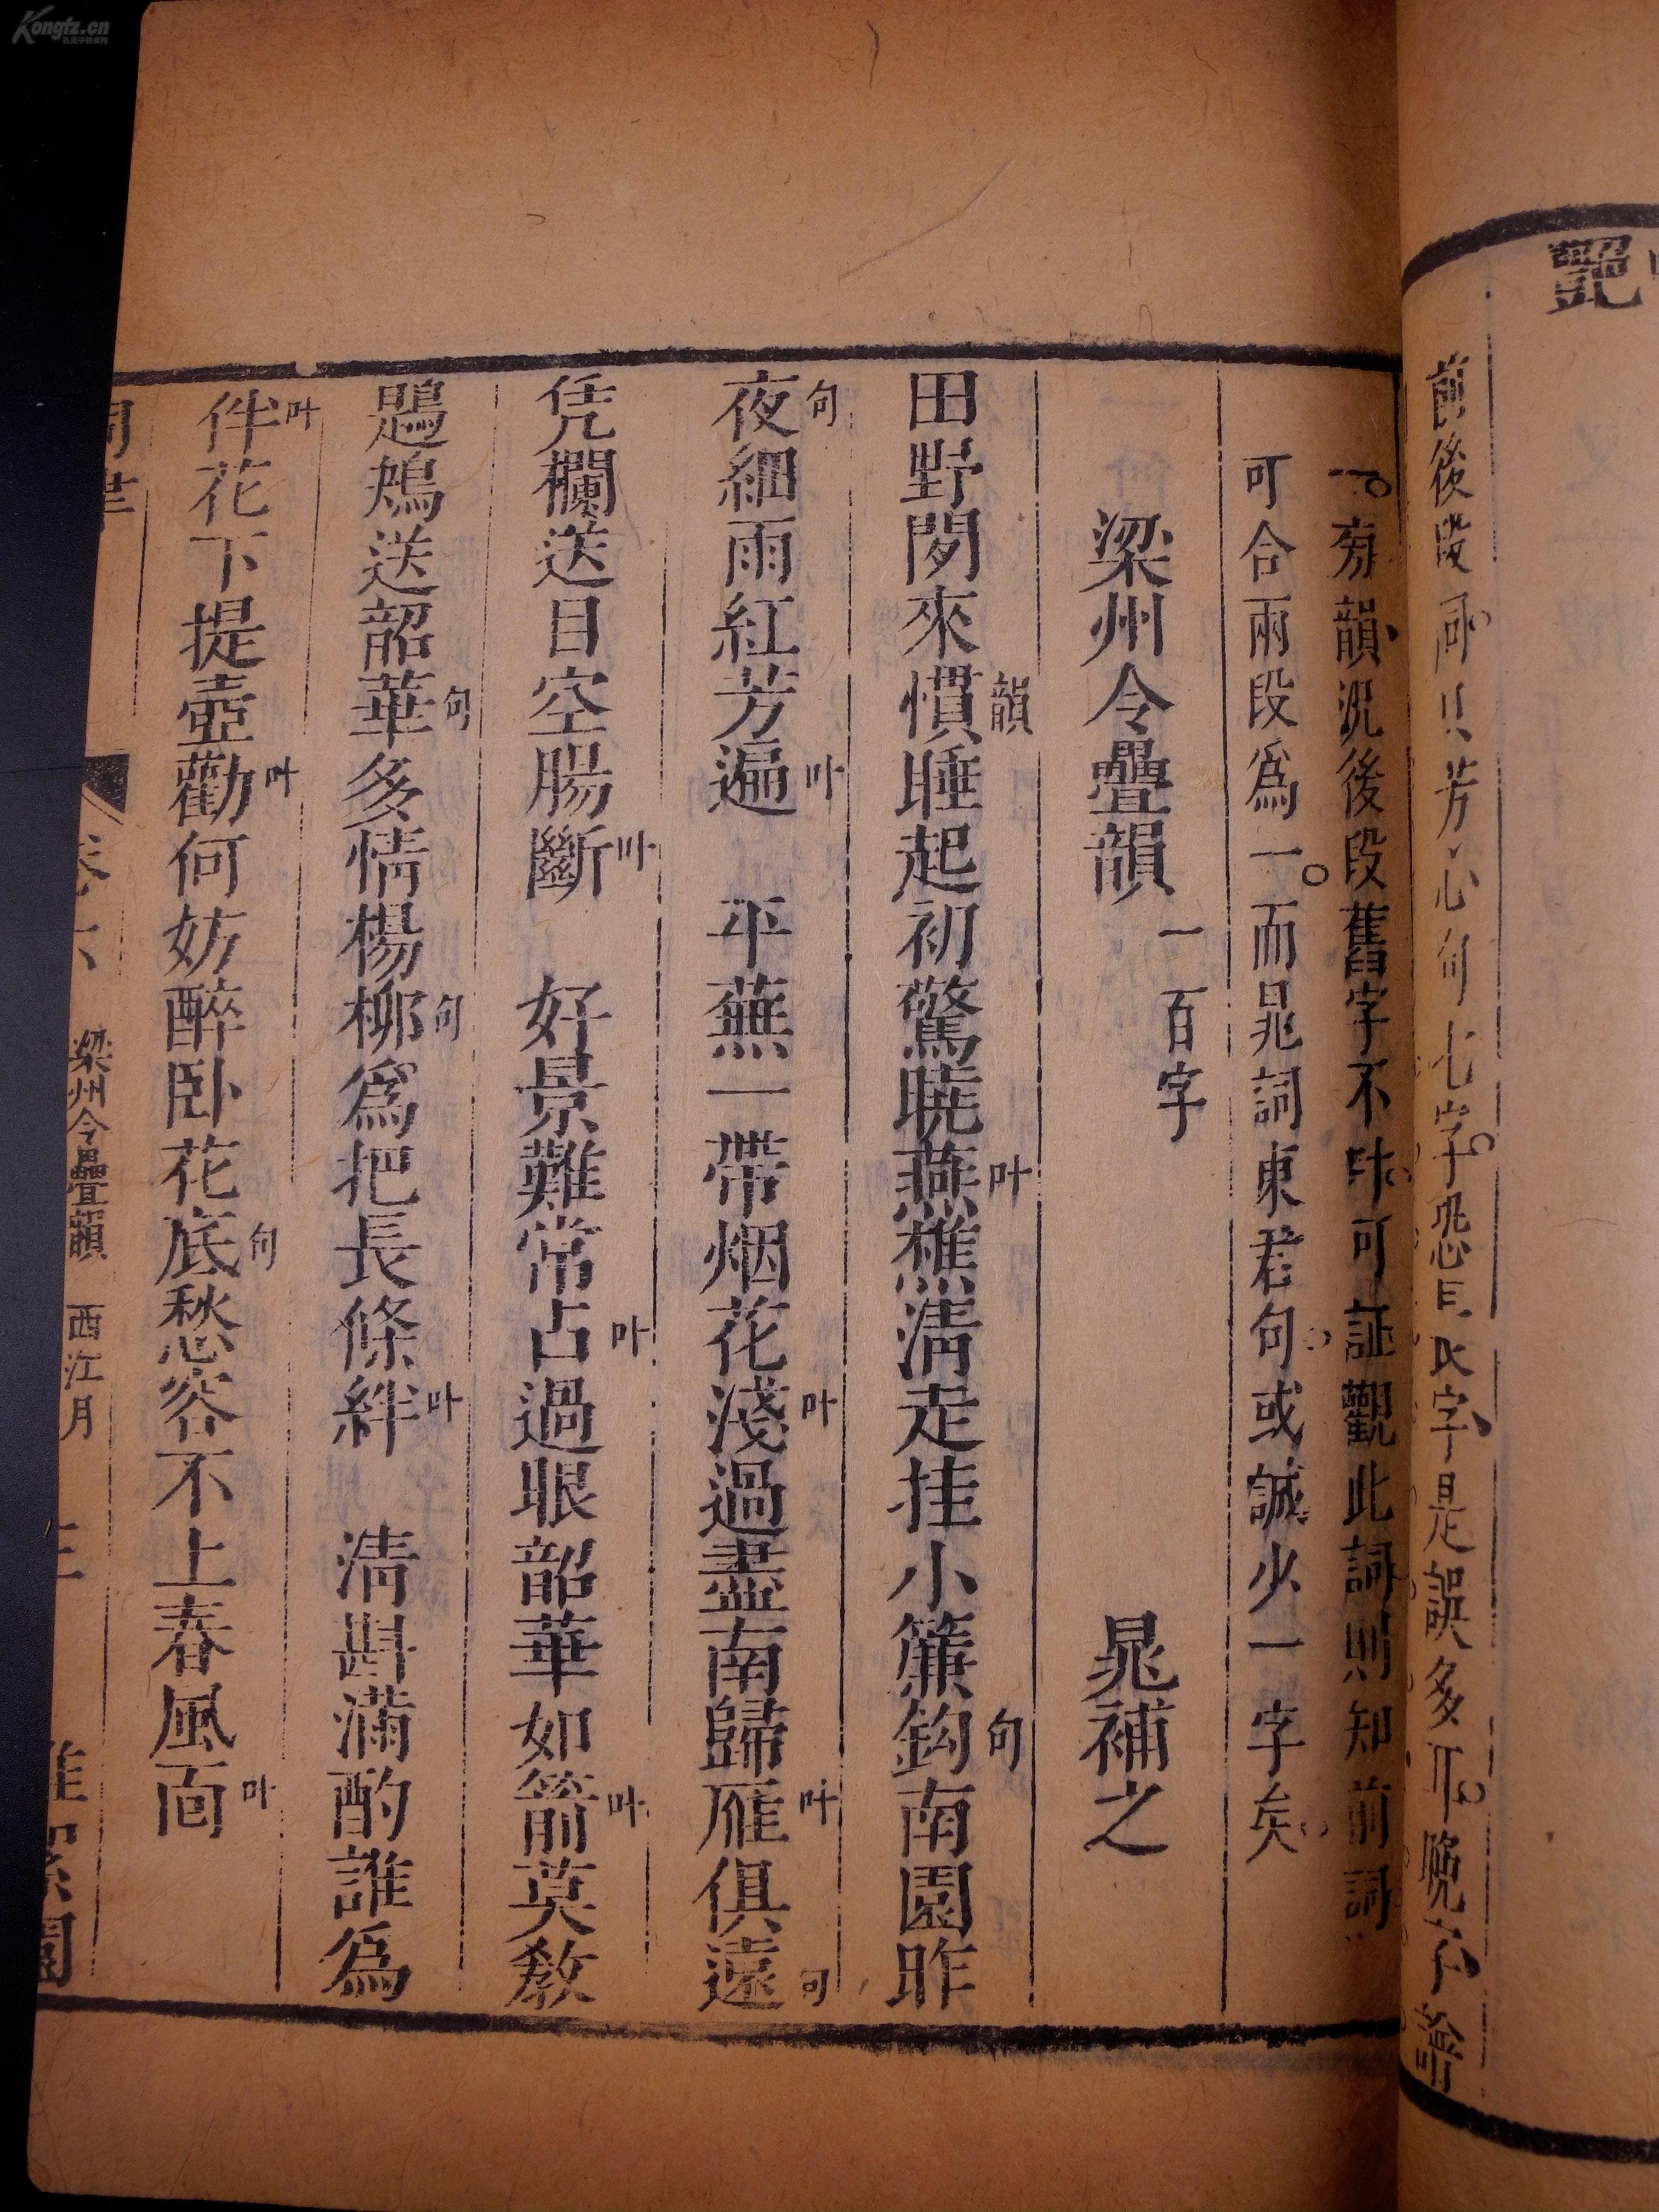 艷
前後段同只芳心句七字恐長氏字是誤多耳晚字
一旁韻況後段舊字不叶可証觀此詞則知前詞
可合兩段爲一而晁詞東君句或誠少一字矣
梁州令疊韻 一百字 晁補之
田野閒來慣韻睡起初驚曉燕叶樵淸走挂小簾鈎句南園昨
夜句細雨紅芳遍叶 平蕪一帶烟花淺叶過盡南歸雁叶俱遠句
凭欄送目空腸斷叶 好景難常占叶過眼韶華如箭叶莫敎
鶗鴂送韶華句多情楊柳句爲把長條絆叶 淸斟滿酌誰爲
伴叶花下提壺勸叶何妨醉卧花底句愁容不上春風面叶
詞律 卷六 梁州令疊韻 西江月
Kongfz.cn